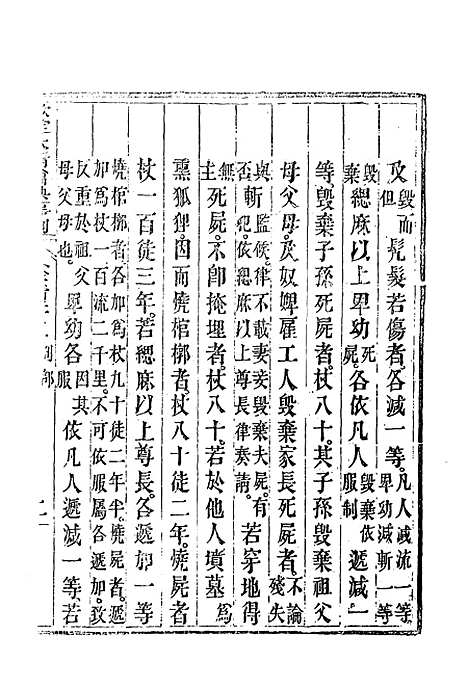 及毀而但髡髮若傷者各減一等。凡人減流一等卑幼減斬一等
毀棄緦麻以上卑幼死屍。各依凡人毀棄依服制遞減一
等。毀棄子孫死屍者。杖八十。其子孫毀棄祖父
母父母。及奴婢雇工人毀棄家長死屍者不論殘失
與否斬監候。律不載妻妾毀棄夫屍。有犯。依緦麻以上尊長律奏請。若穿地得
無主死屍。不即掩埋者。杖八十。若於他人墳墓爲
熏狐狸。因而燒棺槨者。杖八十徒二年。燒屍者
杖一百徒三年。若緦麻以上尊長。各遞加一等
燒棺槨者。各加爲杖九十徒二年半。燒屍者。遞加爲杖一百流二千里。不可依服屬各遞加。致
反重於祖父母父母也。卑幼各因其服依凡人遞減一等。若